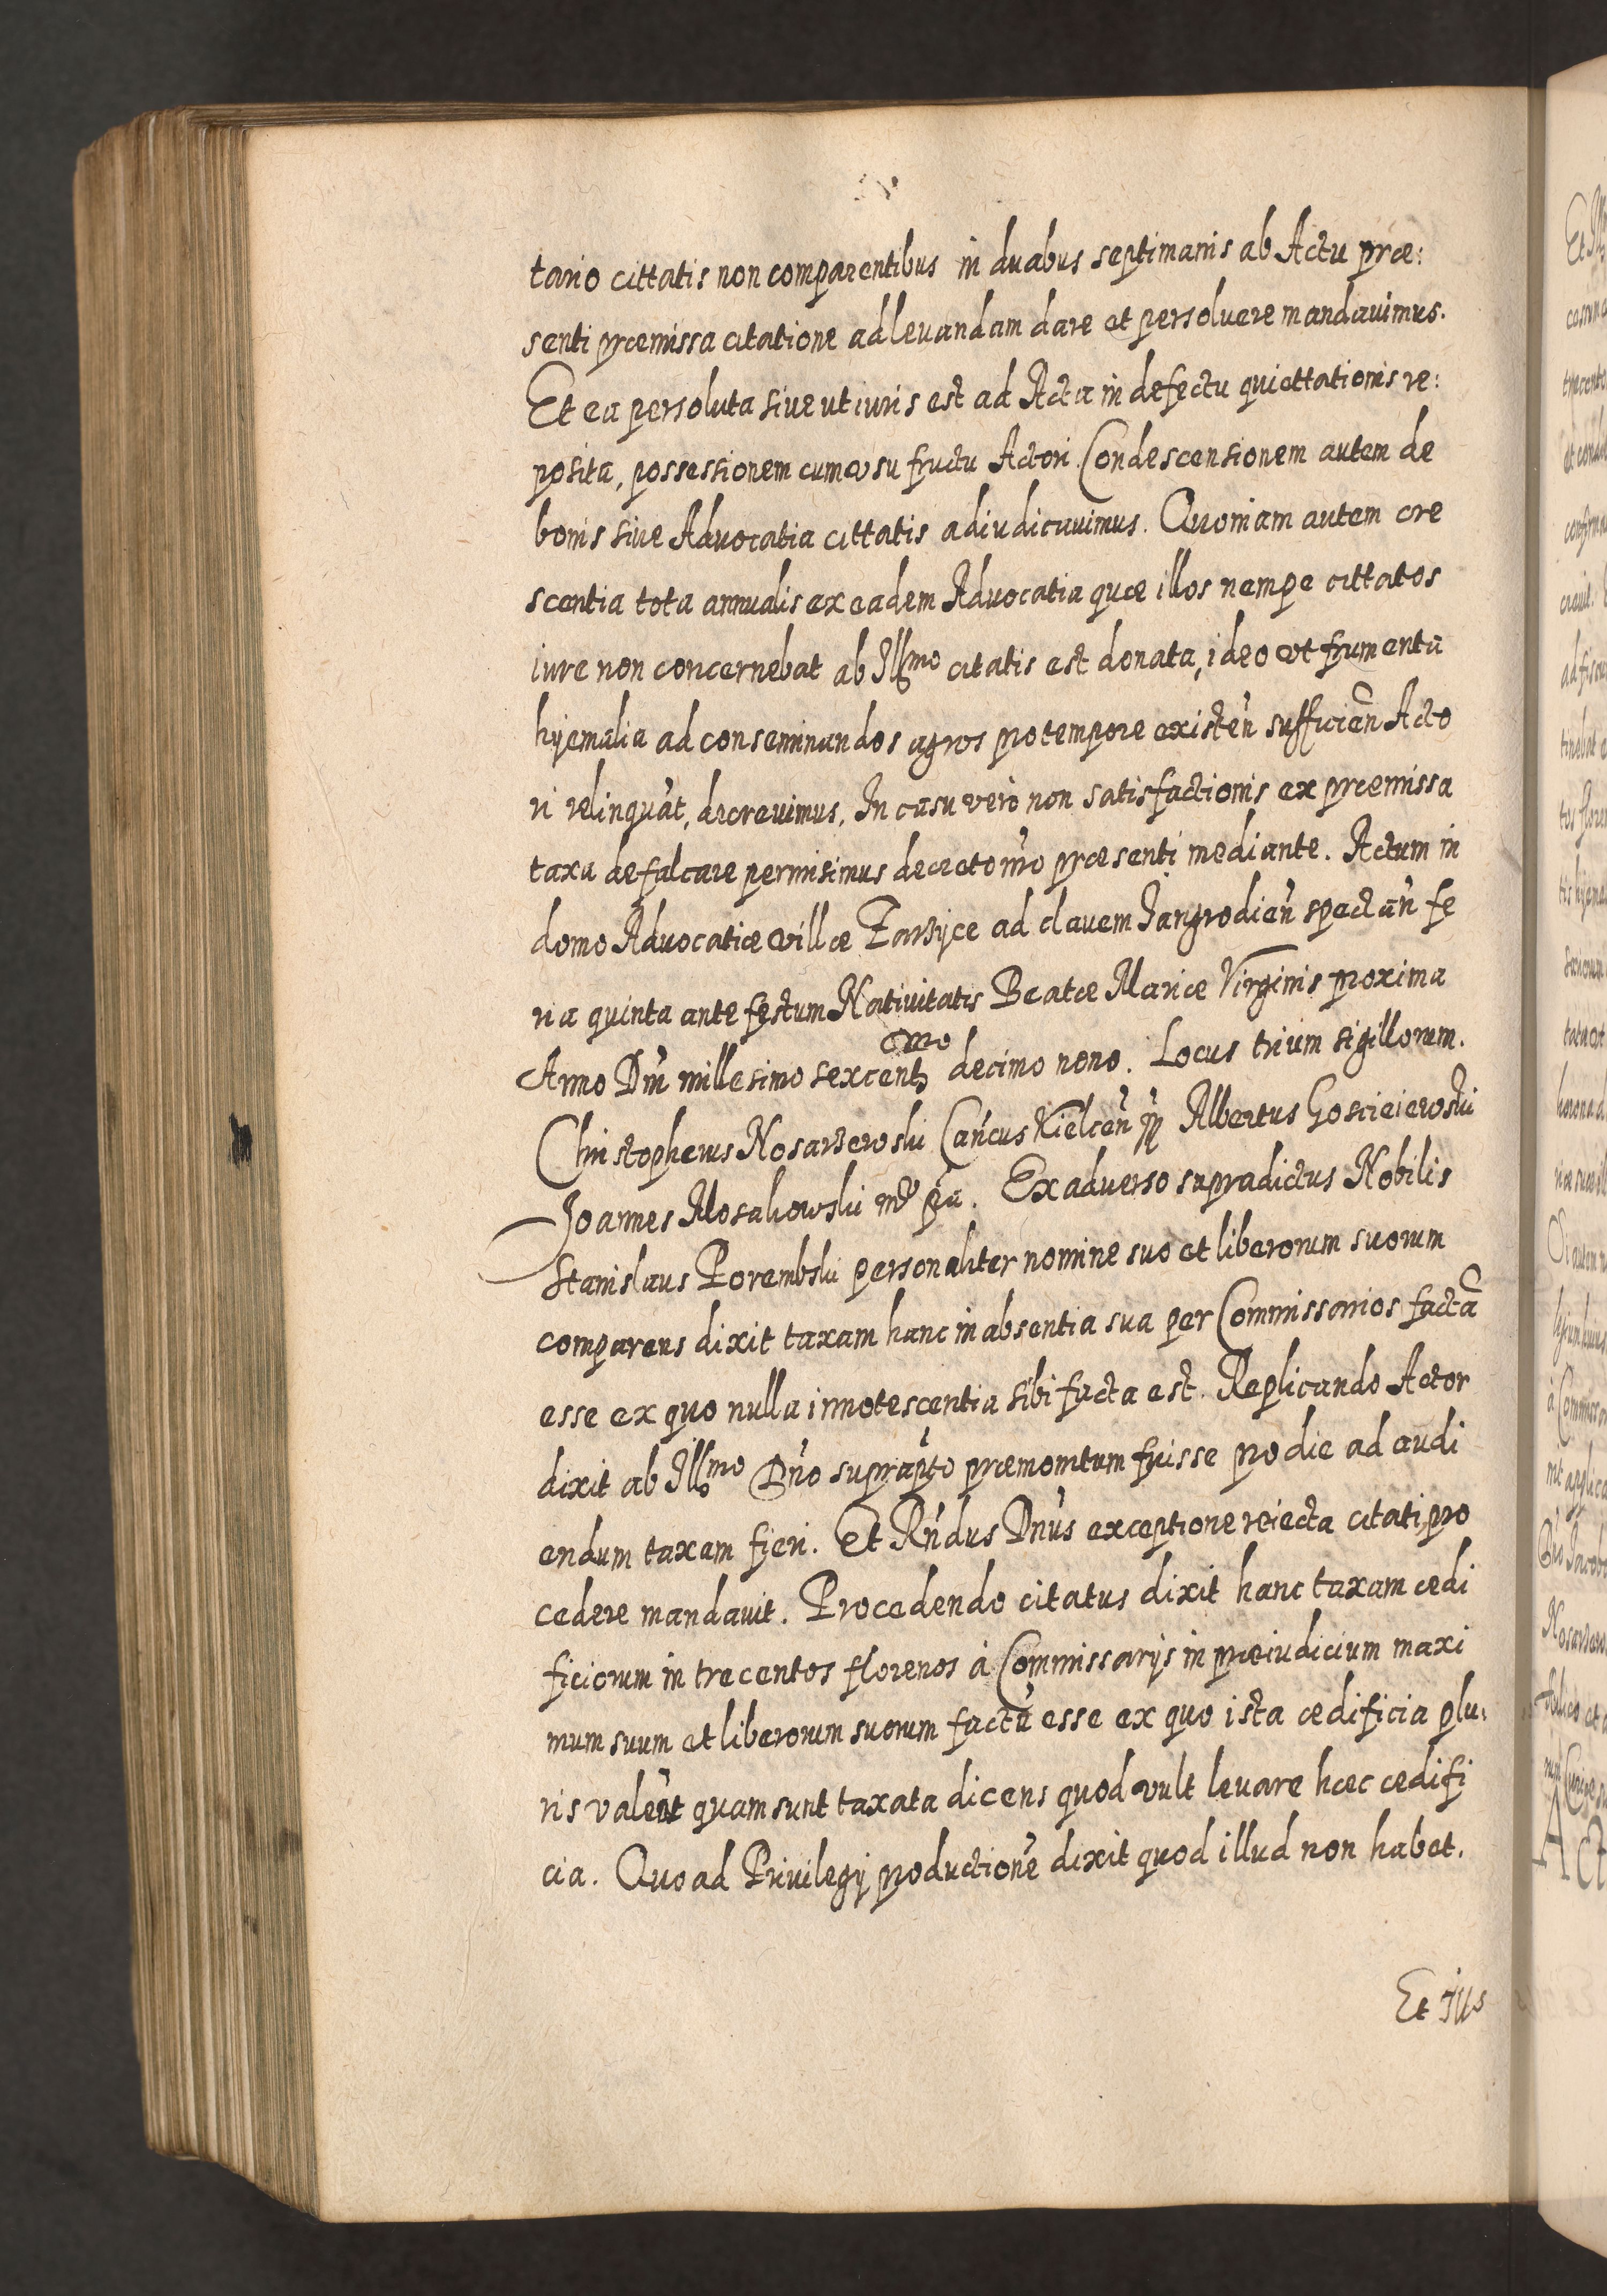 tario cittatis non comparentibus in duabus septimanis ab Actu præ:
senti præmissa citatione ad levandam dare et persoluere mandauimus.
Et ea persoluta siue ut iuris est ad Acta in defectu quiettationis re:
posita, possessionem cum usu fructu Actori Condescensionem autem de
bonis siue Aduocatia cittatis adiudicauimus. Quoniam autem cre
scentia tota annualis ex eadem Aduocatia quæ illos nempe cittatos
iure non concernebat ab Ill͞mo citatis est donata, ideo vt frumenta
hyemalia ad conseminandos agros pro tempore existen̄ sufficien̄ Acto
ri relinquāt, decreuimus. In casu verò non satisfactionis ex præmissa
taxa defalcare permisimus decreto nr̄o præsenti mediante. Actum in
domo Aduocatiæ villæ Tarżyce ad clauem Jangrodien̄ spectan̄ fe
ria quinta ante festum Natiuitatis Beatæ Mariæ Virginis proxima
Anno Dn̄i millesimo sexcent͞mo decimo nono. Locus trium sigillorum.
Christopherus Nosarzewski Can̄cus Kielcen̄ Albertus Goscieiewski
Joannes Mosakowski mp̄ pa. Ex aduerso supradictus Nobilis
Stanislaus Porembski personaliter nomine suo et liberorum suorum
comparens dixit taxam hanc in absentia sua per Commissarios factā
esse ex quo nulla innotescentia sibi facta est. Replicando Actor
dixit ab Ill͞mo Dn̄o suprap̄to præmonitum fuisse pro die ad audi
endum taxam fieri. Et Rn̄dus Dn̄us exceptione reiecta citati, pro
cedere mandauit. Procedendo citatus dixit hanc taxam ædi
ficiorum in trecentos florenos à Commissarijs in præiudicium maxi
mum suum et liberorum suorum factū esse ex quo ista ædificia plu:
ris valent quam sunt taxata dicens quod vult leuare hæc ædifi
cia. Quo ad Priuilegij productionē dixit quod illud non habet.
Et Ill